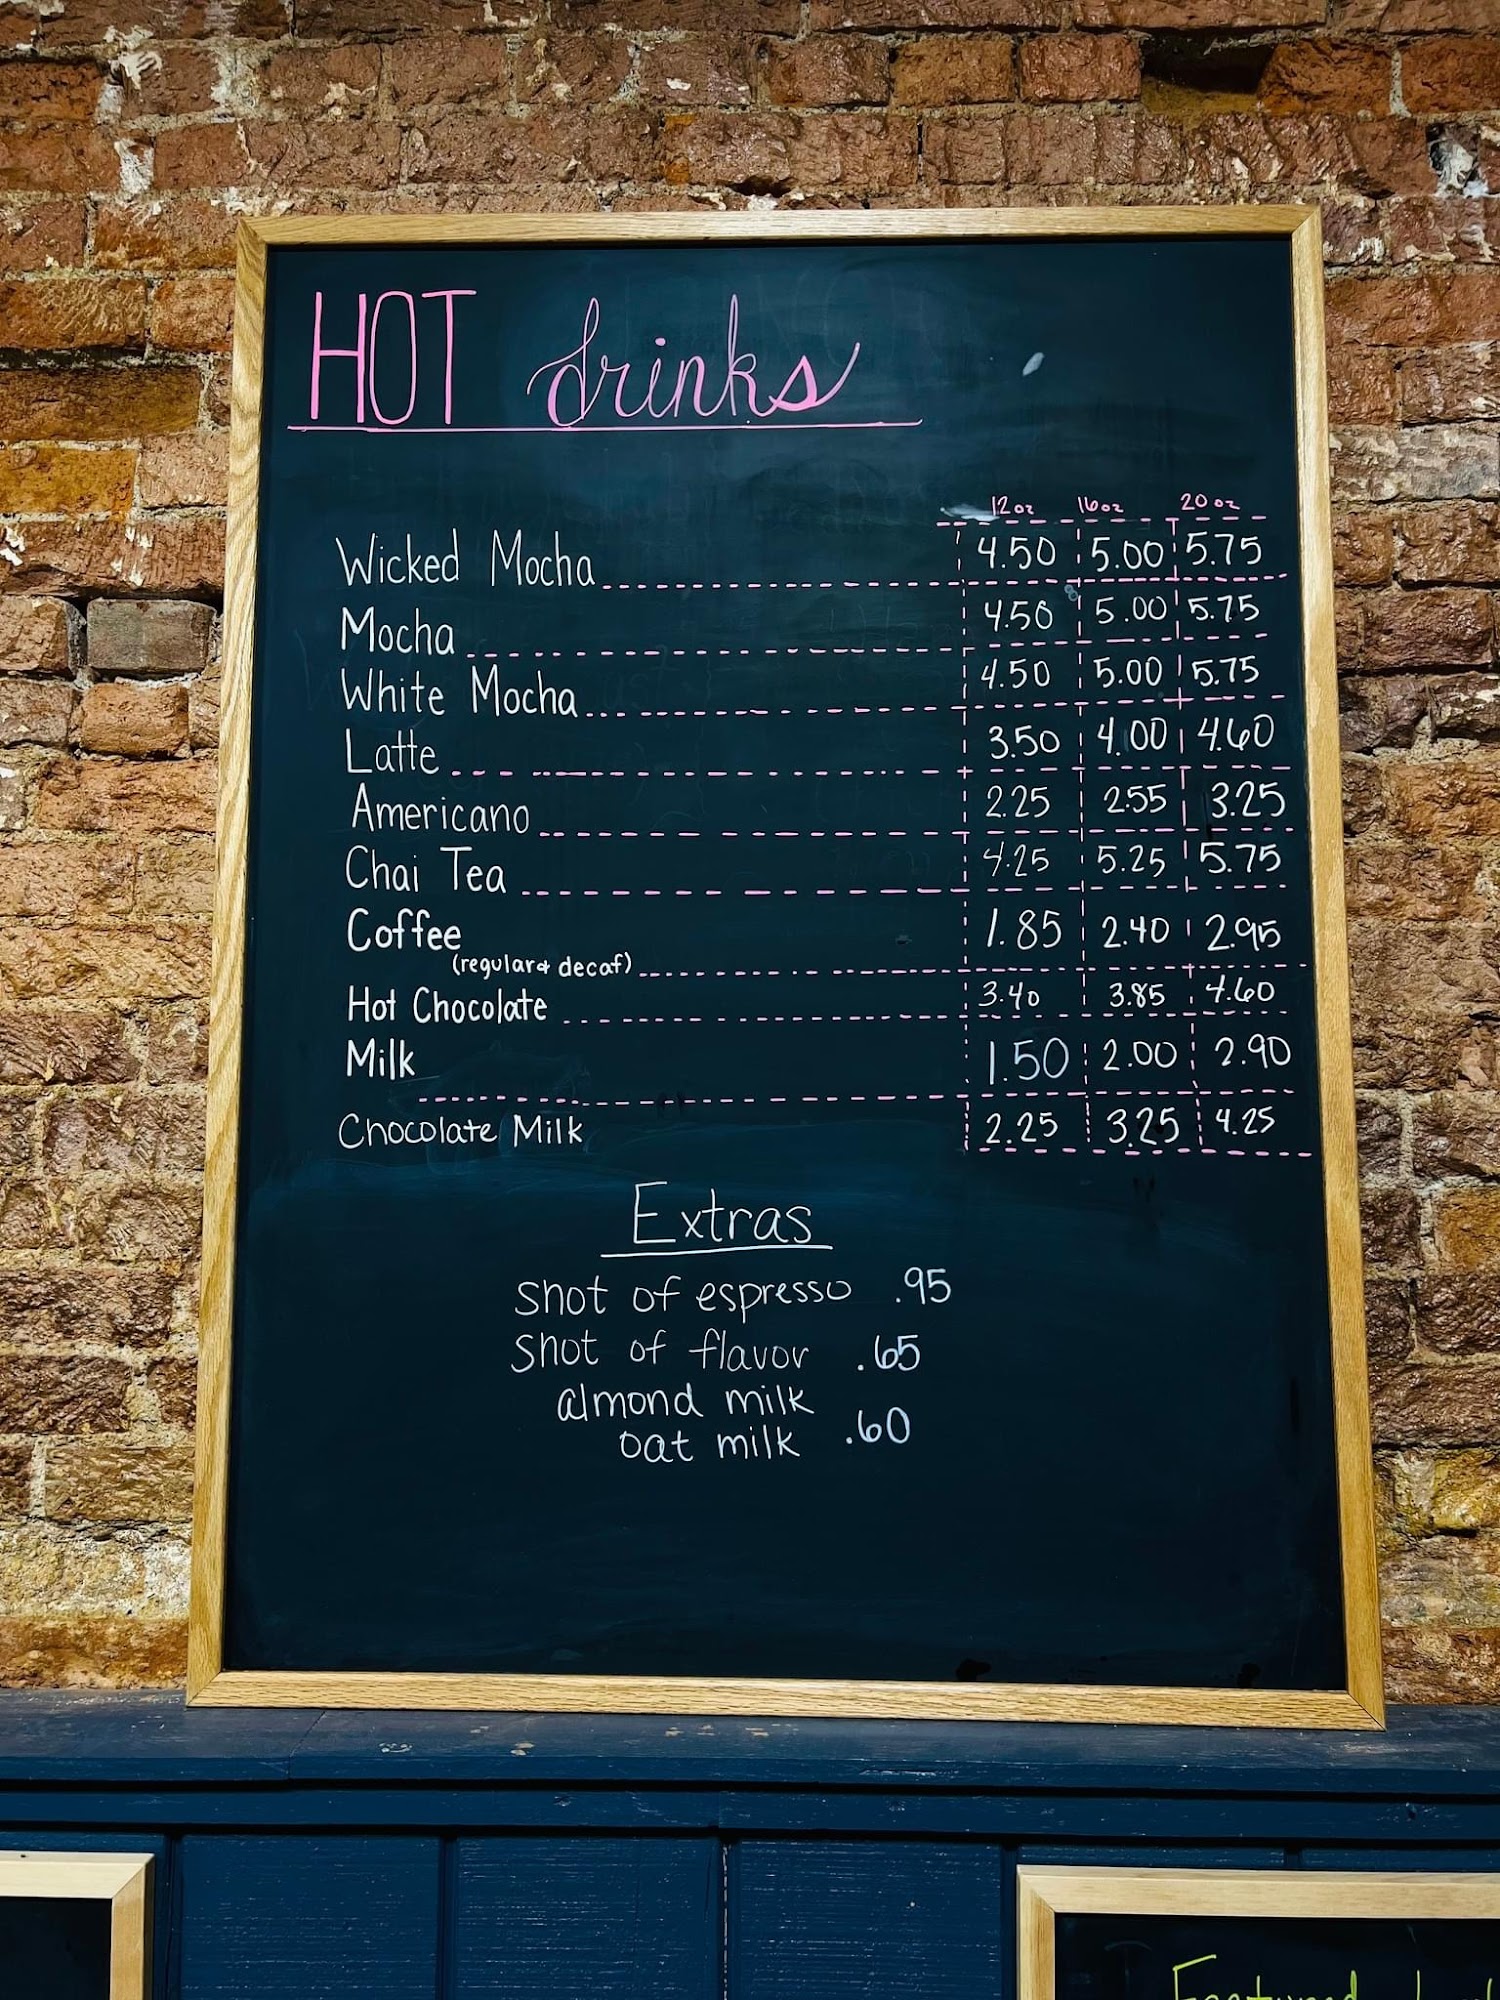 HOT drinks
12oz 16oz 20oz
Wicked Mocha 4.50 5.00 5.75
Mocha 4.50 5.00 5.75
White Mocha 4.50 5.00 5.75
Latte 3.50 4.00 4.60
Americano 2.25 2.55 3.25
Chai Tea 4.25 5.25 5.75
Coffee 1.85 2.40 2.95
(regular & decaf)
Hot Chocolate 3.40 3.85 4.60
Milk 1.50 2.00 2.90
Chocolate Milk 2.25 3.25 4.25
Extras
shot of espresso .95
shot of flavor .65
almond milk
oat milk .60
Featured